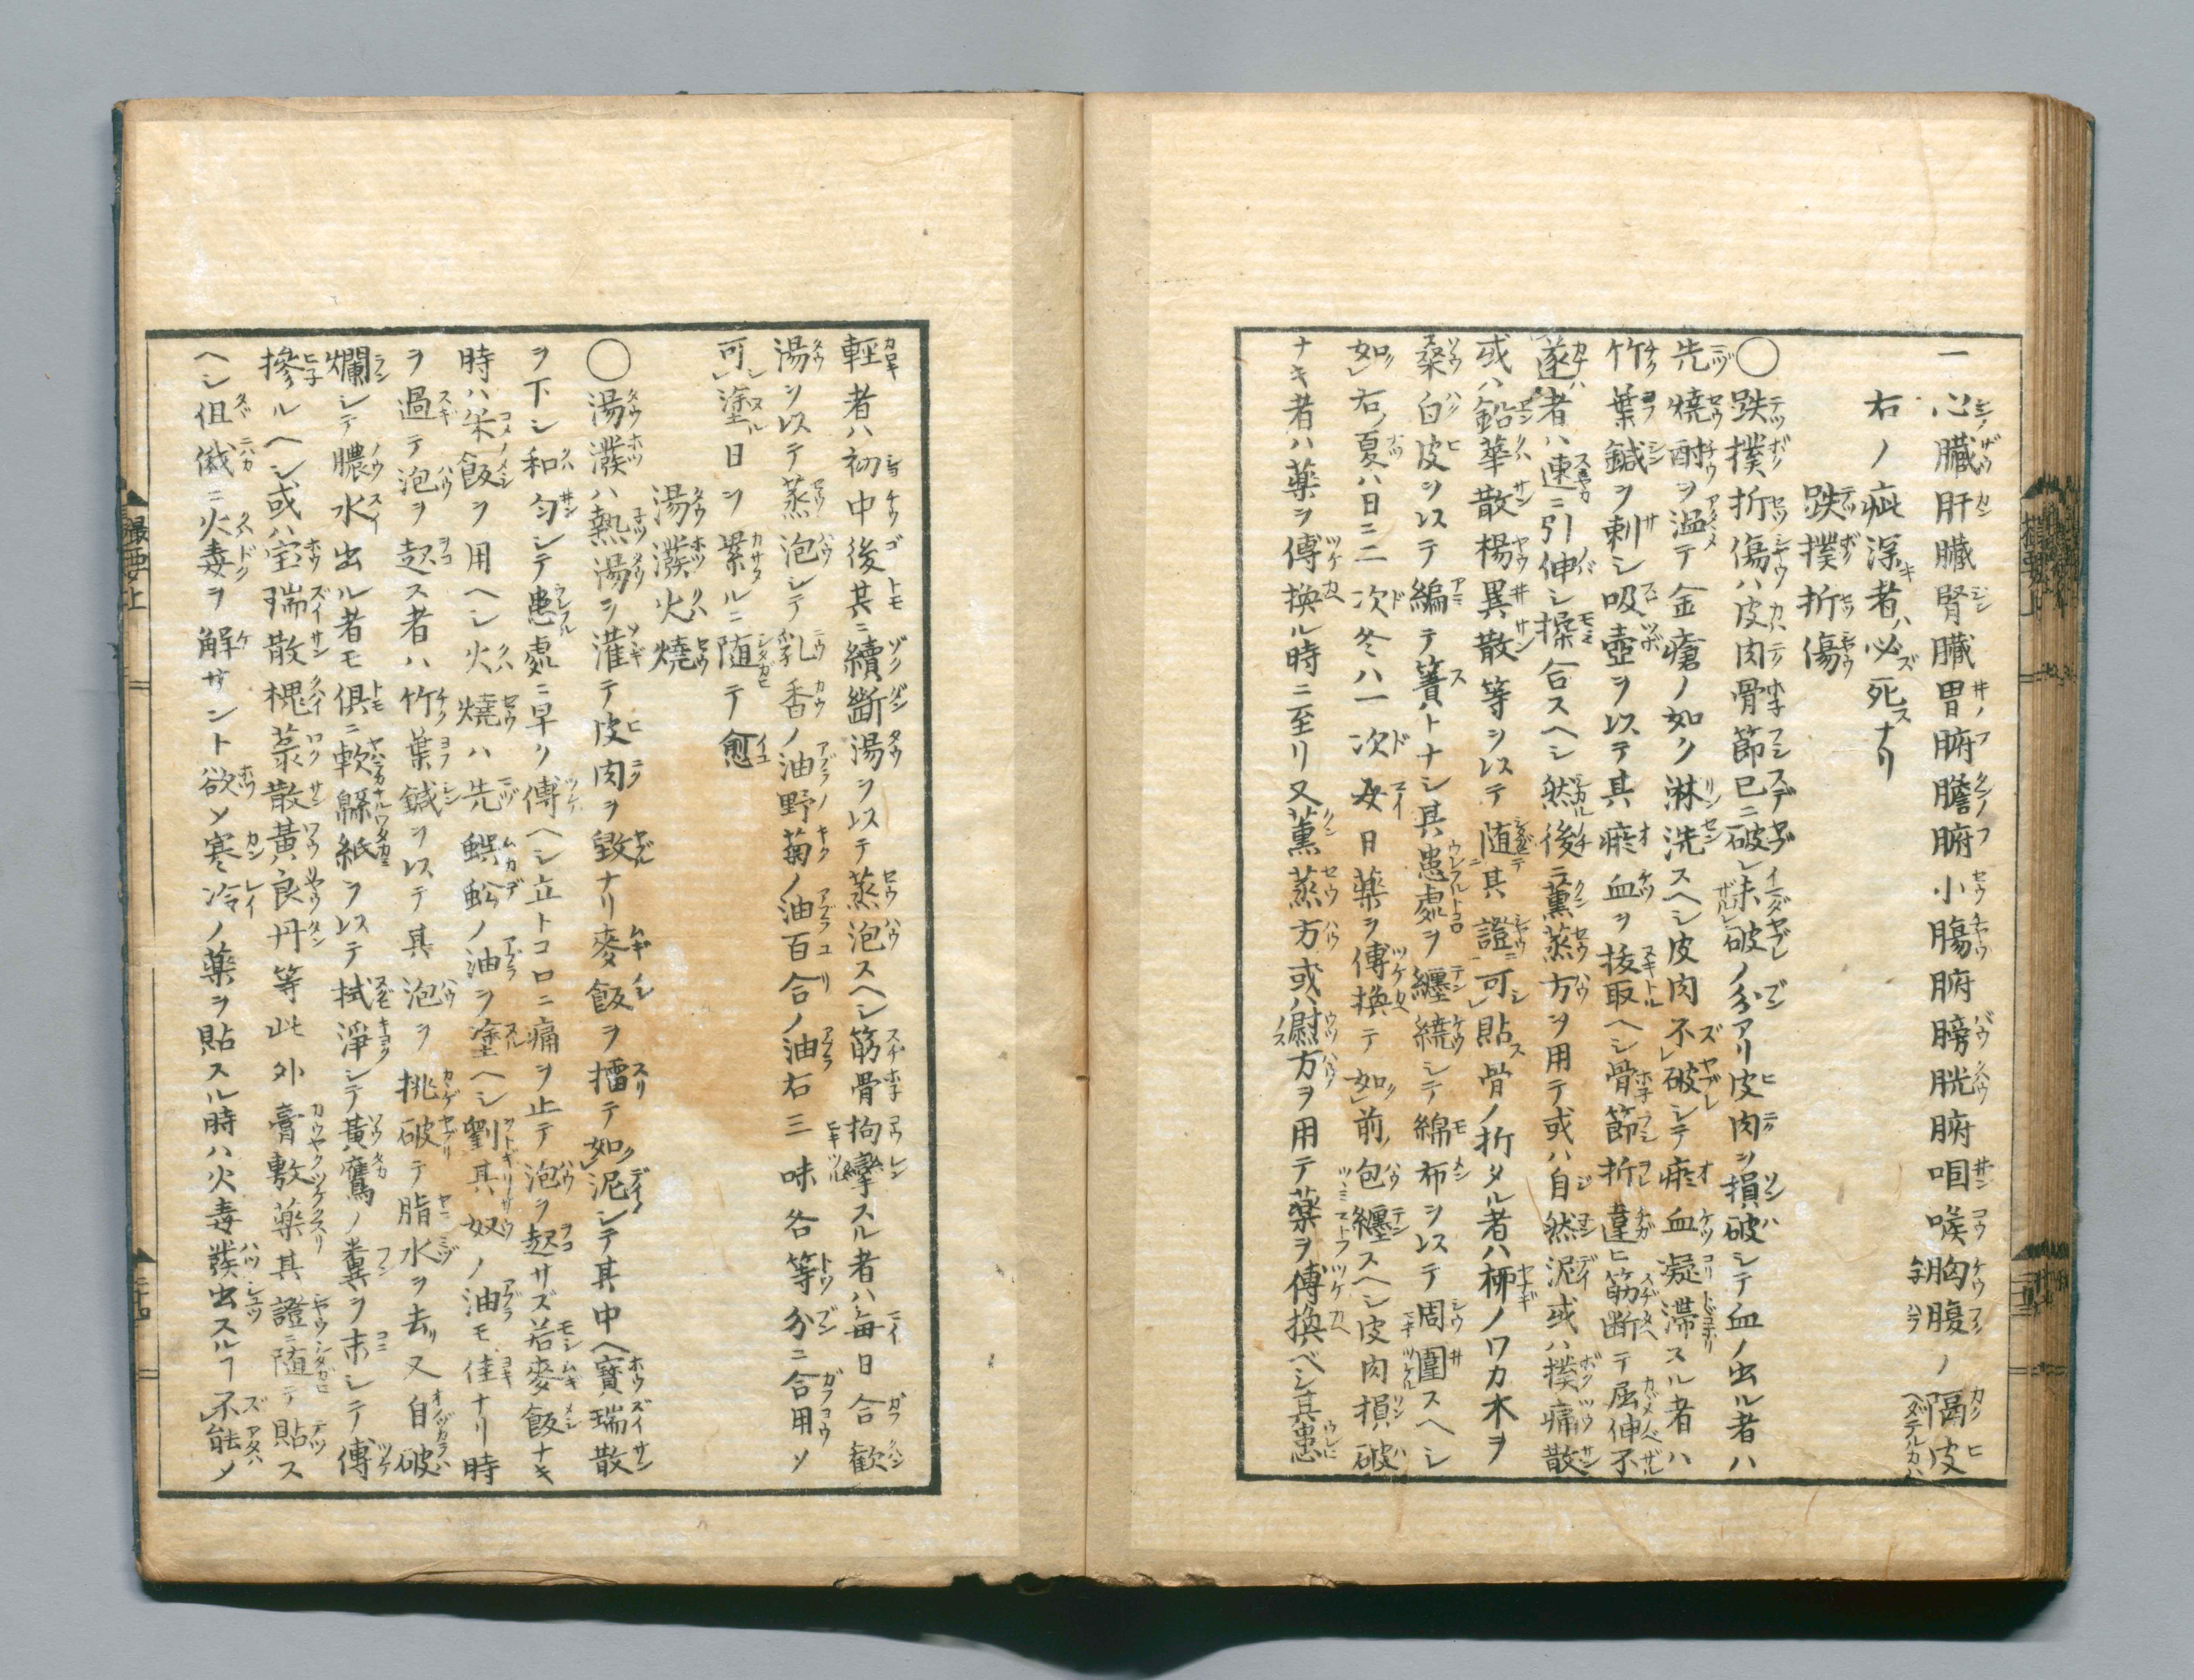 一心臓肝臓腎臓胃腑膽腑小腸腑膀胱腑咽喉胸腹ノ隔皮
右ノ疵深者ハ必死ナリ
跌撲折傷
〇跌撲折傷ハ皮肉骨節已ニ破レ未破ノ分アリ皮肉ヲ損破シテ血ノ出ル者ハ
先燒酎ヲ温テ金瘡ノ如ク淋洗スヘシ皮肉不レ破シテ瘀血凝滞スル者ハ
竹葉鍼ヲ刺シ吸壺ヲ以テ其瘀血ヲ抜取ヘシ骨節折違ヒ筋断テ屈伸不
遂者ハ速ニ引伸シ揉合スヘシ然後ニ薫蒸方ヲ用テ或ハ自然泥或ハ撲痛散
或ハ鉛華散楊異散等ヲ以テ随其證ニ可レ貼骨ノ折タル者ハ栁ノワカ木ヲ
桑白皮ヲ以テ編テ簀トナシ其患處ヲ纏繞シテ綿布ヲ以テ周圍スヘシ
如レ右ノ夏ハ日ニ二次冬ハ一次毎日薬ヲ傅換テ如レ前ノ包纏スヘシ皮肉損破
ナキ者ハ薬ヲ傅換ル時ニ至リ又薫蒸方或ハ熨方ヲ用テ薬ヲ傅換ベシ其患
輕者ハ初中後其ニ續斷湯ヲ以テ蒸泡スヘシ筋骨拘攣スル者ハ毎日合歓
湯ヲ以テ蒸泡シテ乳香ノ油野菊ノ油百合ノ油右三味各等分ニ合用ソ
可レ塗日ヲ累ルニ随テ愈
湯潑火燒
〇湯潑ハ熱湯ヲ灌テ皮肉ヲ毀ナリ麥飯ヲ擂テ如レ泥シテ其中ヘ寳瑞散
ヲ下シ和匀シテ患處ニ早ク傅ヘシ立トコロニ痛ヲ止テ泡ヲ起サズ若麥飯ナキ
時ハ米飯ヲ用ヘシ火燒ハ先蜈蚣ノ油ヲ塗ヘシ劉其奴ノ油モ佳ナリ時
ヲ過テ泡ヲ起ス者ハ竹葉鍼ヲ以テ其泡ヲ挑破テ脂水ヲ去リ又自破
爛シテ膿水出ル者モ倶ニ軟綿紙ヲ以テ拭淨シテ黄鷹ノ糞ヲ末シテ傅
摻ルヘシ或ハ宝瑞散槐菉散黄良丹等此外膏敷薬其證ニ随テ貼ス
ヘシ但俄ニ火毒ヲ解サント欲ソ寒冷ノ薬ヲ貼スル時ハ火毒發出スルヿ不レ能メ
撮要上
二十四